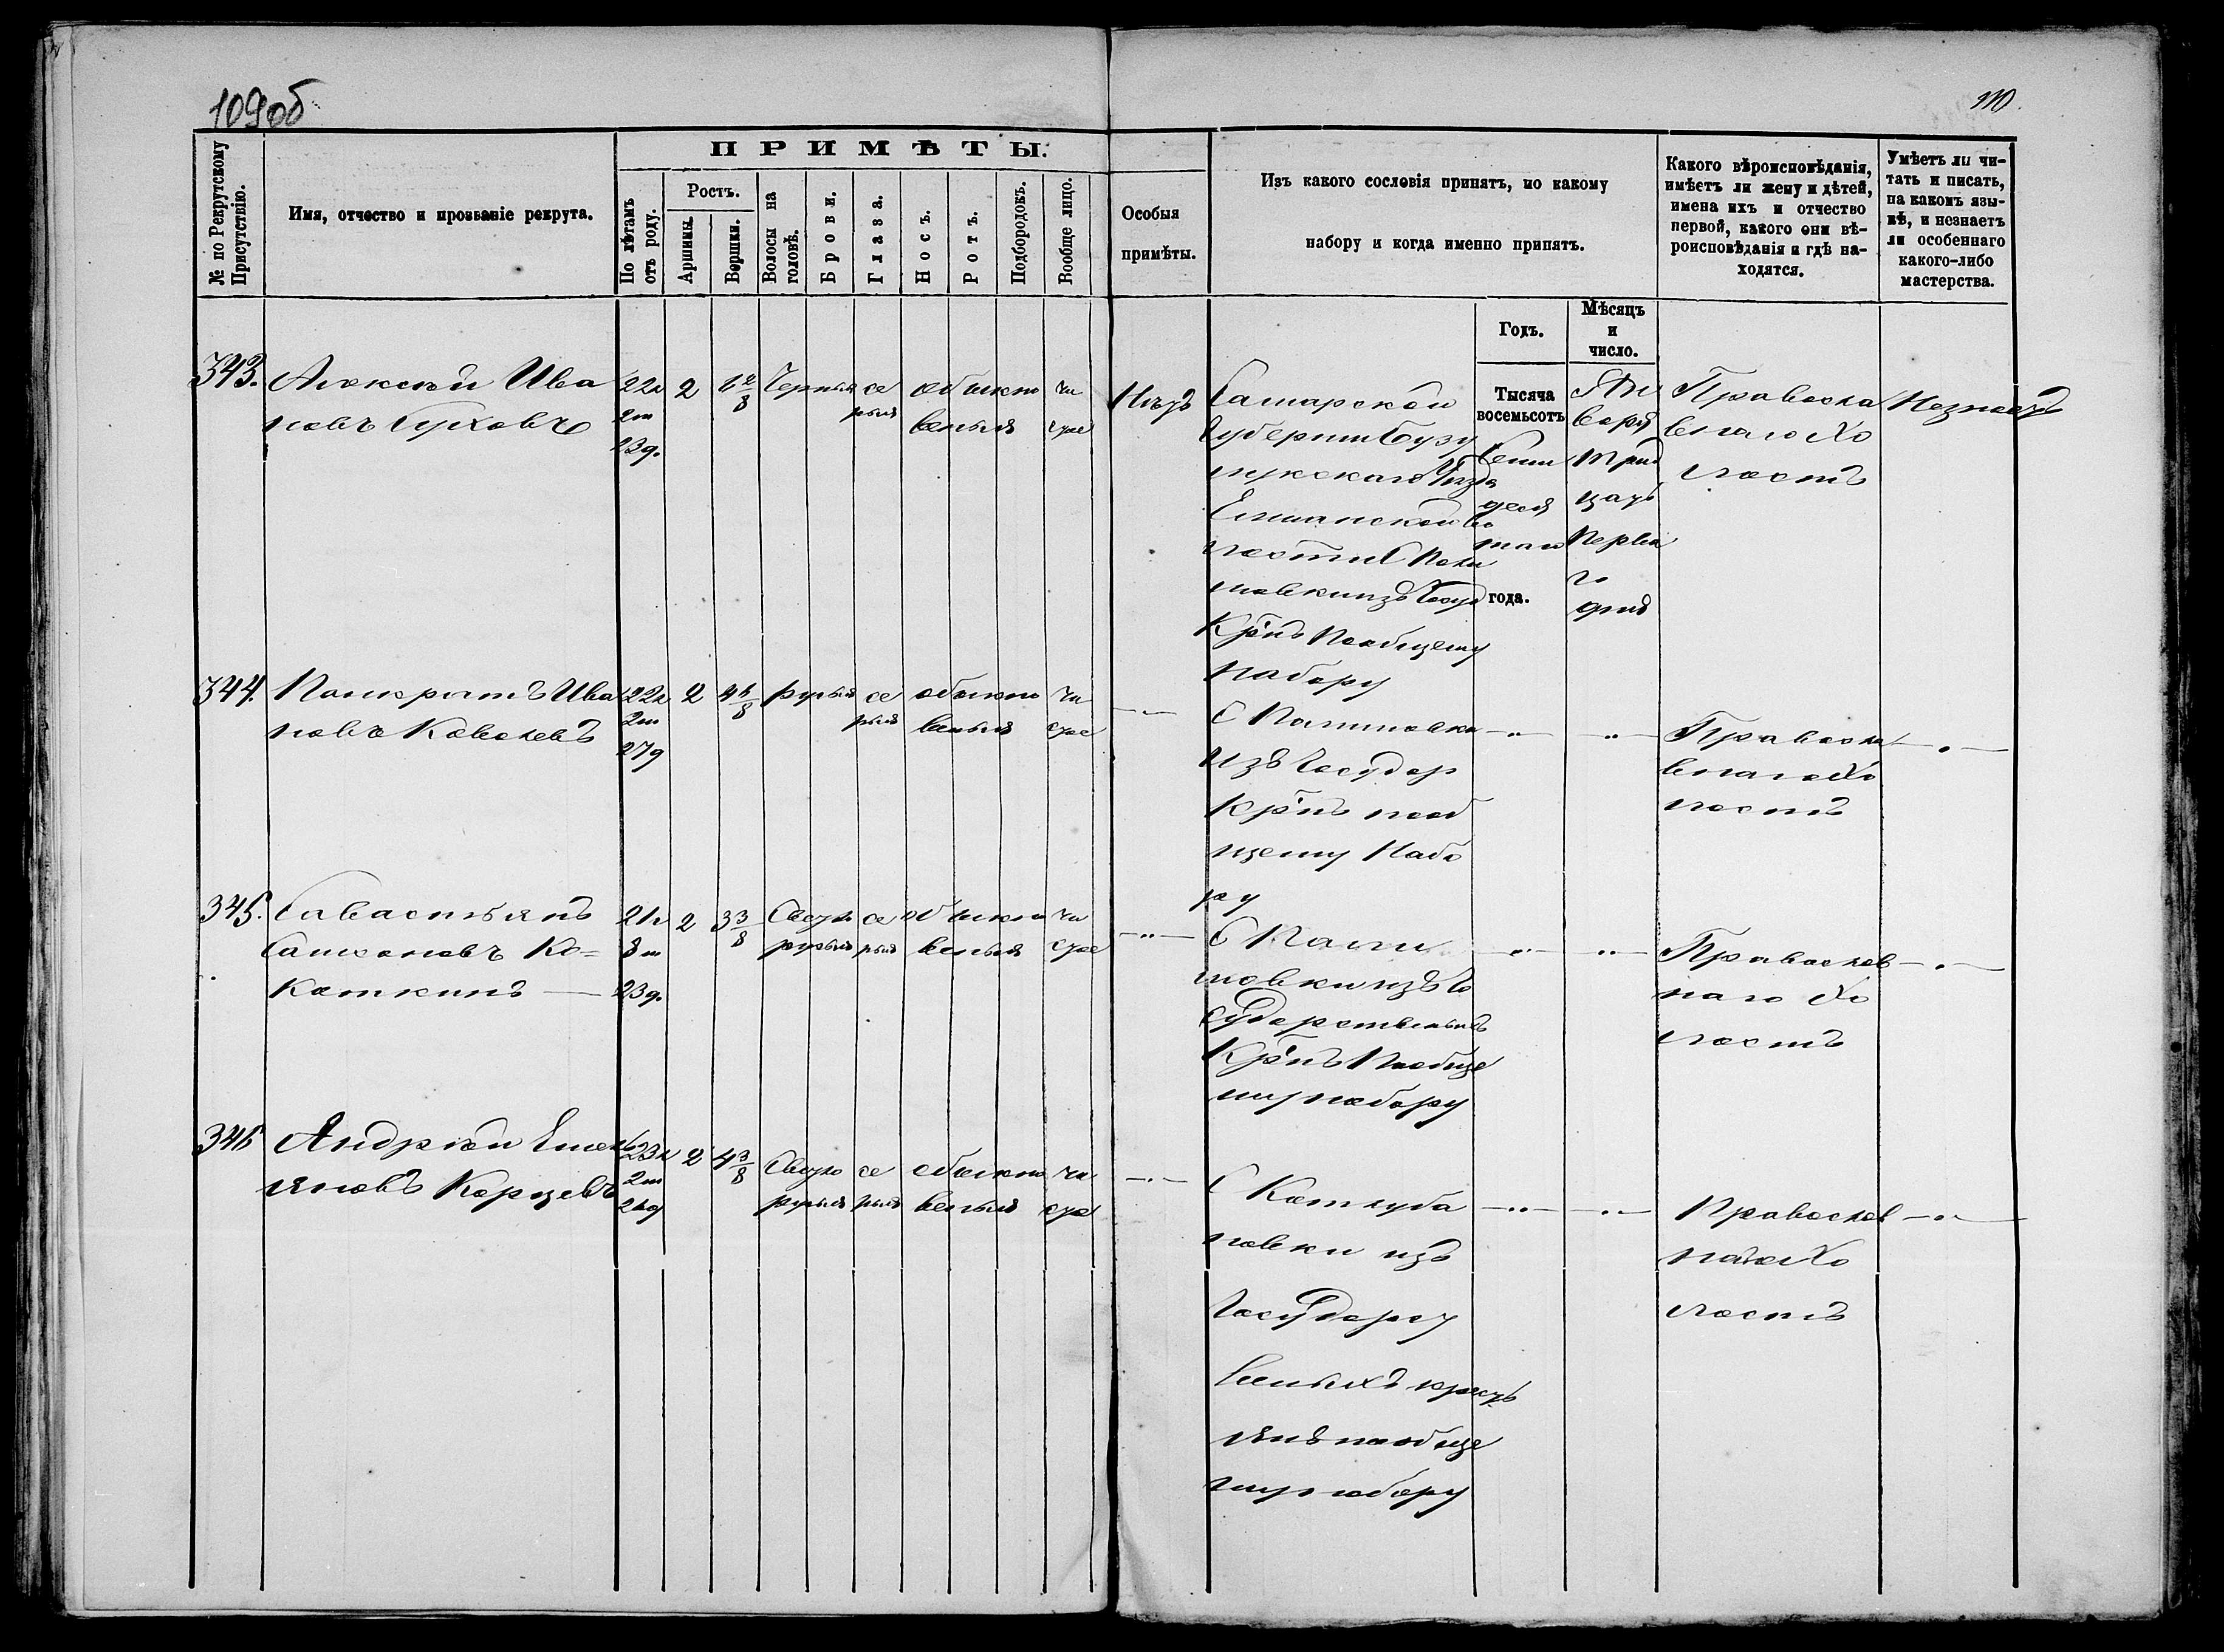 109об
110.
№ по Рекрутскому Присутствію.
Имя, отчество и прозваніе рекрута.
ПРИМѢТЫ:
По лѣтамъ отъ роду.
Ростъ.
Аршины.
Вершки.
Волосы на головѣ.
Брови.
Глаза.
Носъ.
Ротъ.
Подбородокъ.
Вообще лицо.
Особыя
примѣты.
Изъ какого сословія принятъ, по какому
набору и когда именно принятъ.
Годъ.
Мѣсяцъ
и
число.
Какого вѣроисповѣданія,
имѣетъ ли жену и дѣтей,
имена ихъ и отчество
первой, какого они вѣ-
роисповѣданія и гдѣ на-
ходятся.
Умѣетъ ли чи-
тать и писать,
на какомъ язы-
кѣ, и незнаетъ
ли особеннаго
какого-либо
мастерства.
343.
Алексѣй Ива
новъ
22л
2м
23д.
2
Черныя
се
рыя
обыкно
веныя
чи
стое
Нѣтъ
Самарской
Губерніи Бузу
лукскаго Уѣзда
Елшанской Во
лости С Пали
мовки изъ Госуд
Кр'нъ Пообщему
Набору
Тысяча
восемьсотъ
семи
деся
таго
года.
Ян
варя
Трид
цать
Перва
го
дня
Правосла
внаго Хо
лостъ
Незнаетъ
344.
Панкратъ Ива
новъ Ковалевъ
22л
2м
27д
2
русыя
се
рыя
обыкно
веныя
чи
стое
С Палимовки
Изъ Государ
Кр'нъ пооб
щему Набо
ру
Правосла
внаго Хо
лостъ
345.
Савастьянъ
Сатоновъ Ко=
Каткинъ
21л
8м
23д.
2
3 3/8
Свет
русыя
се
рыя
обыкно
веныя
чи
стое
С Пали
мовки изъ Го
сударственыхъ
Кр'нъ Пообще
му набору
Православ
наго Хо
лостъ
346
Андрѣй Емель
яновъ Корцевъ
23л
2м
2
4 3/8
Свет
русыя
се
рыя
обыкно
веныя
чи
стое
С Камлуба
новки изъ
Государст
веныхъ кресть
янъ пообще
му набору
Православ
наго Хо
лостъ